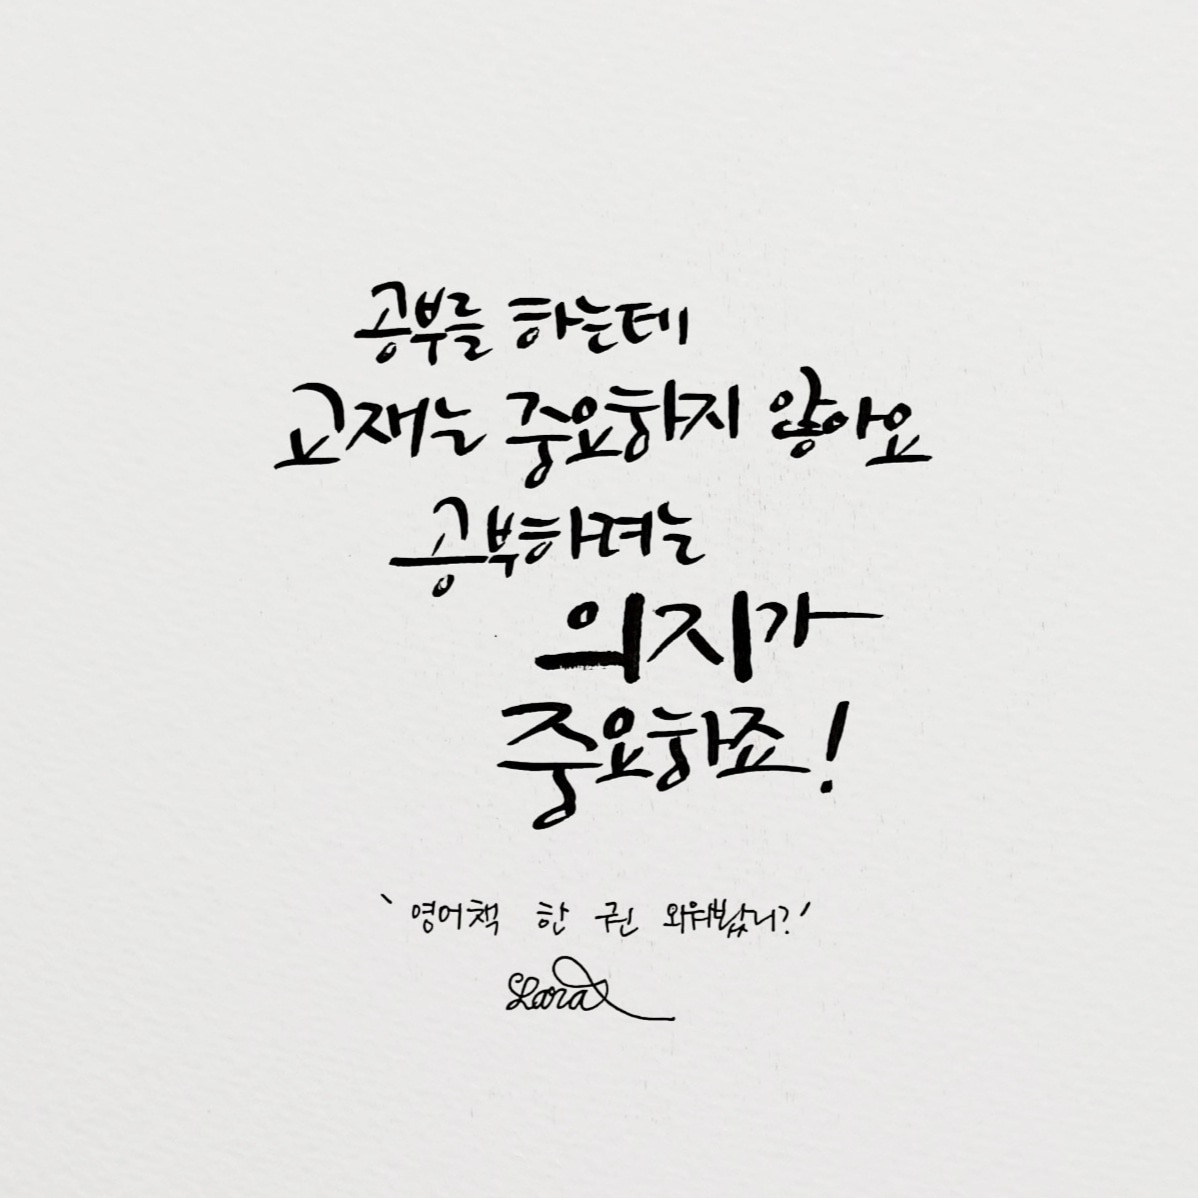 공부를 하는데
교재는 중요하지 않아요
공부하려는
의지가
중요하죠!
'영어책 한 권 외워봤니?'